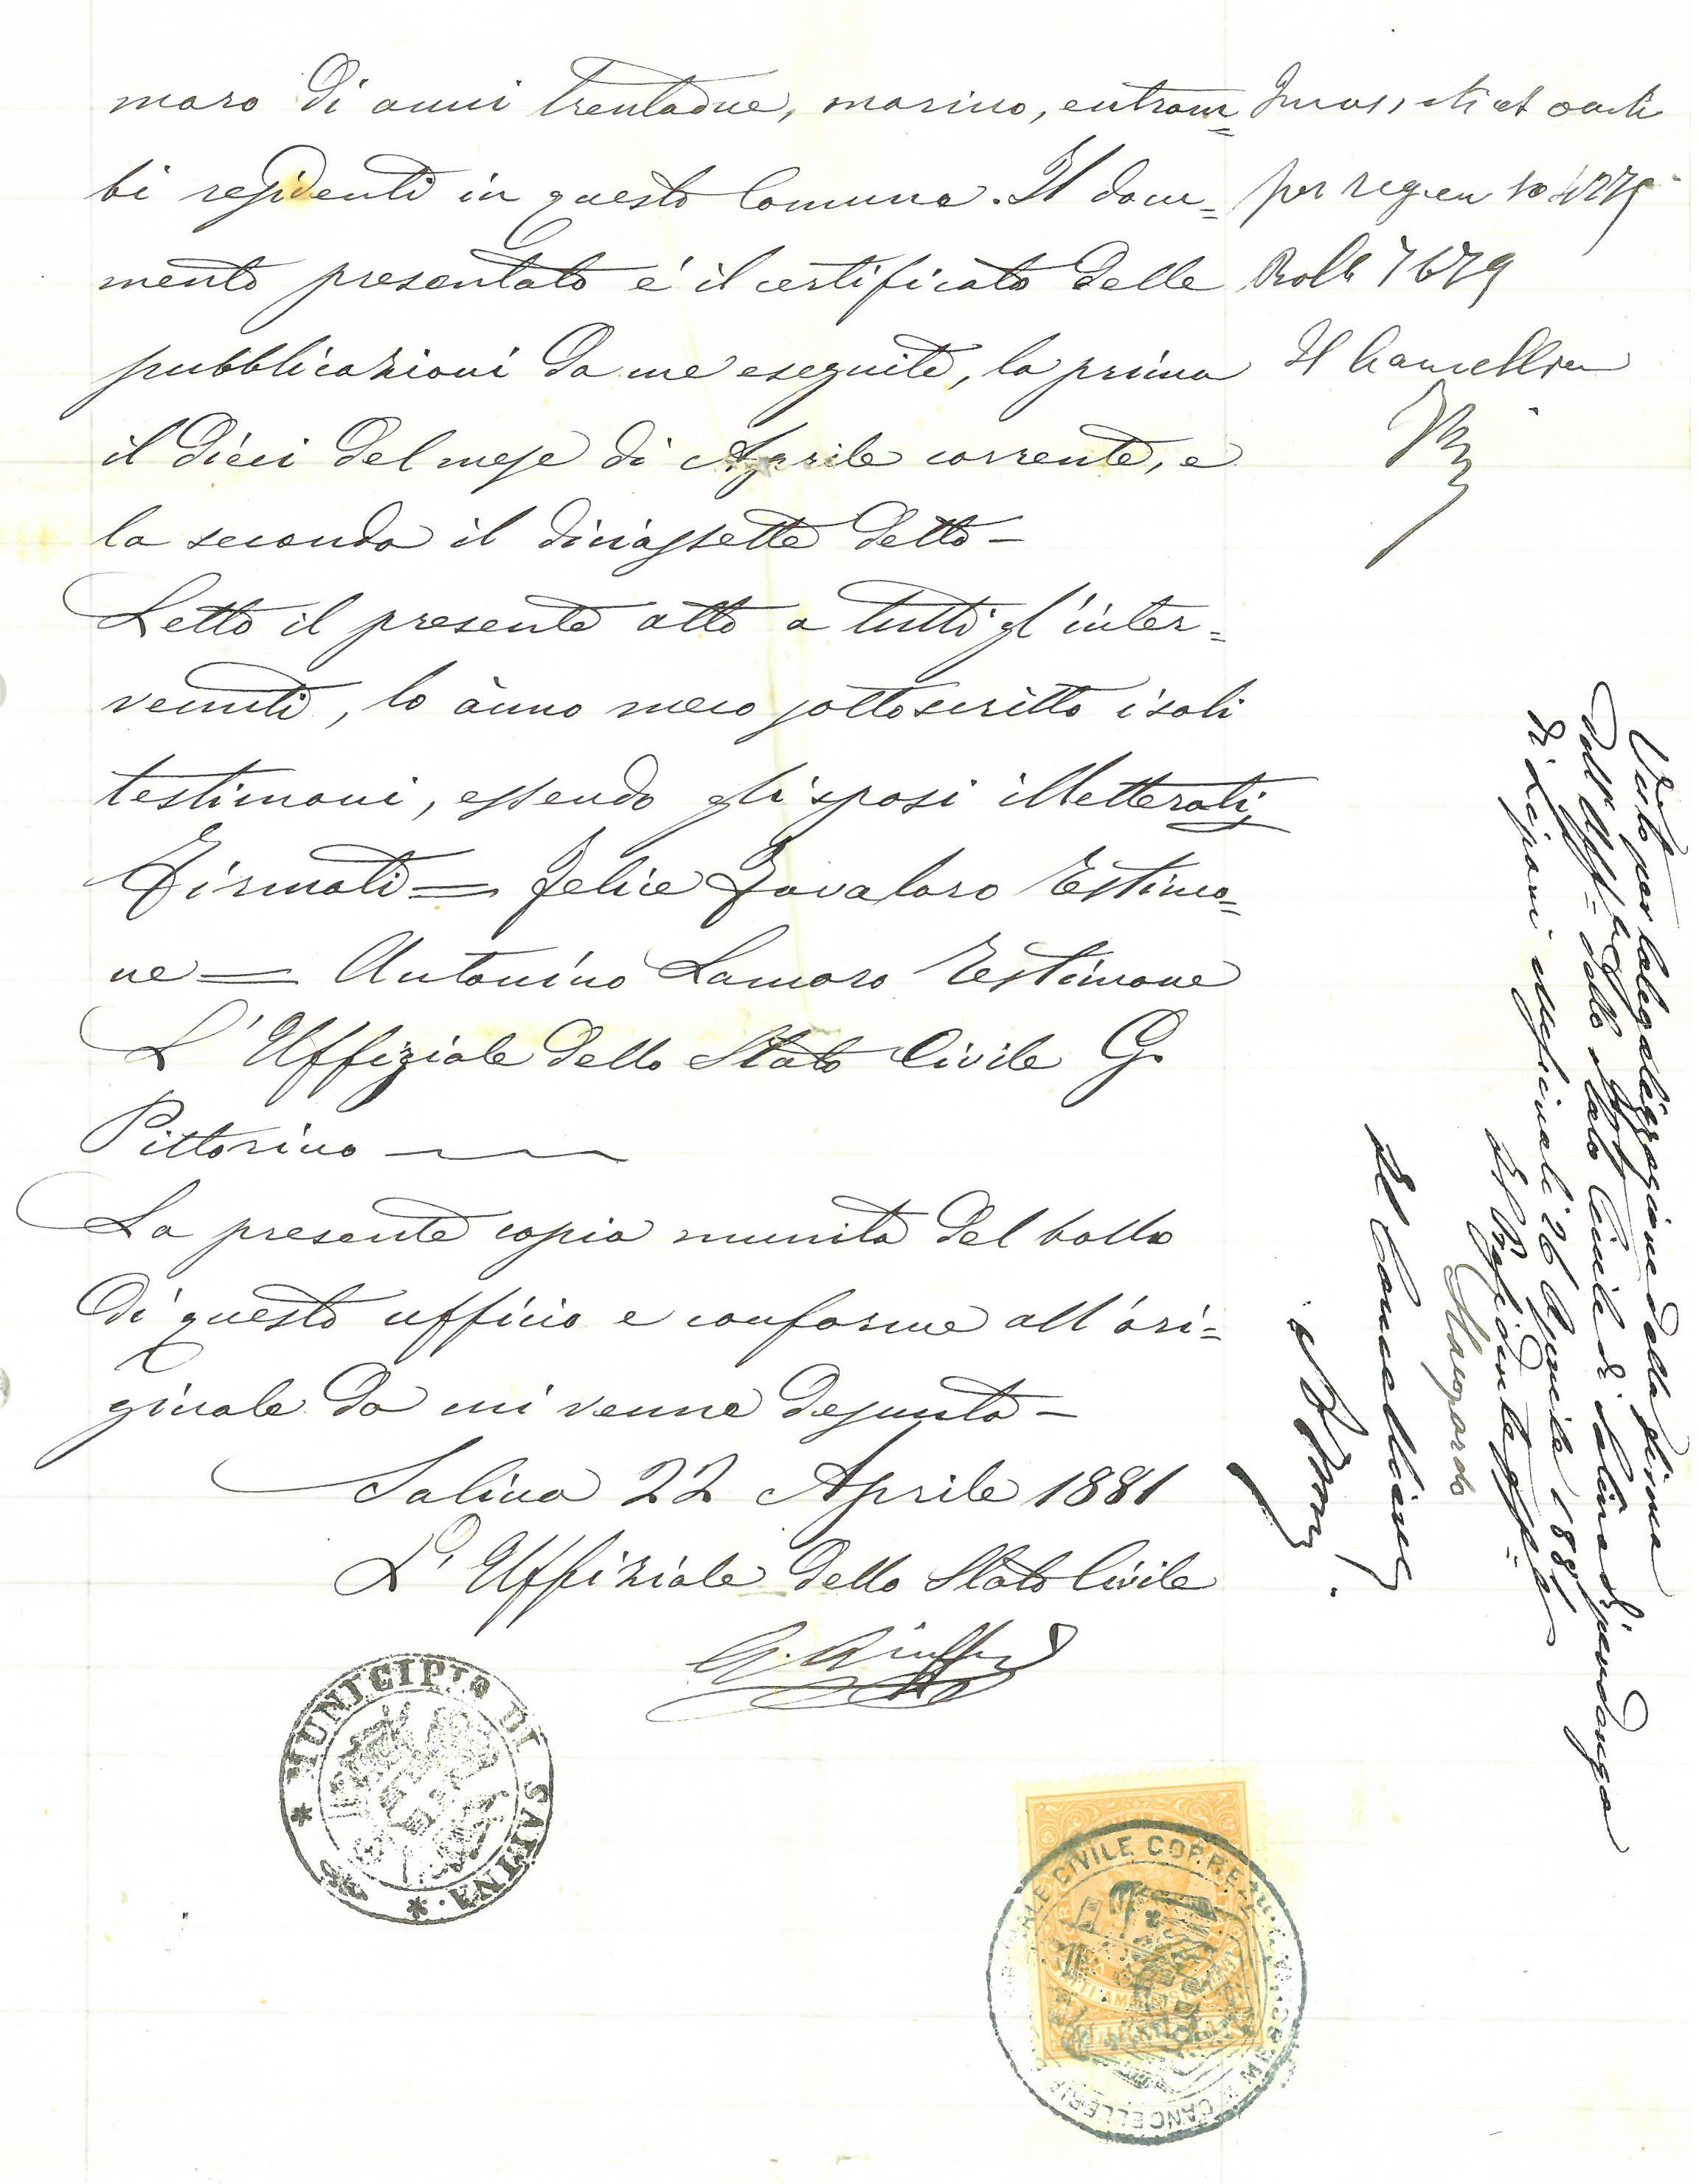 maro di anni trentadue, marino, entram=
bi residenti in questo Comune. Il docu=
mento presentato é il certificato delle
pubblicazioni da me eseguite, la prima
il dieci del mese di Aprile corrente, e
la seconda il diciassette detto —
Letto il presente atto a tutti gl'inter=
venuti, lo ànno meco sottoscritto i soli
testimoni, essendo gli sposi illetterati;
Firmati = Felice Zavaloro Testimo=
ne = Antonino Lamaro Testimone
L'Uffiziale dello Stato Civile G.
Pittorino —
La presente copia munita del bollo
di questo ufficio e conforme all'ori=
ginale da cui venne desunta —
Salina 22 Aprile 1881
L'Uffiziale dello Stato Civile
per
Il Cancelliere
Visto per la legalizzazione della firma
dell' dello Stato Civile di Salina dipendenza
di Lipari Messina li 26 Aprile 1881
Il Presidente
Il Cancelliere
* MUNICIPIO DI SALINA *
CIVILE CORREZ
CANCELLERIA